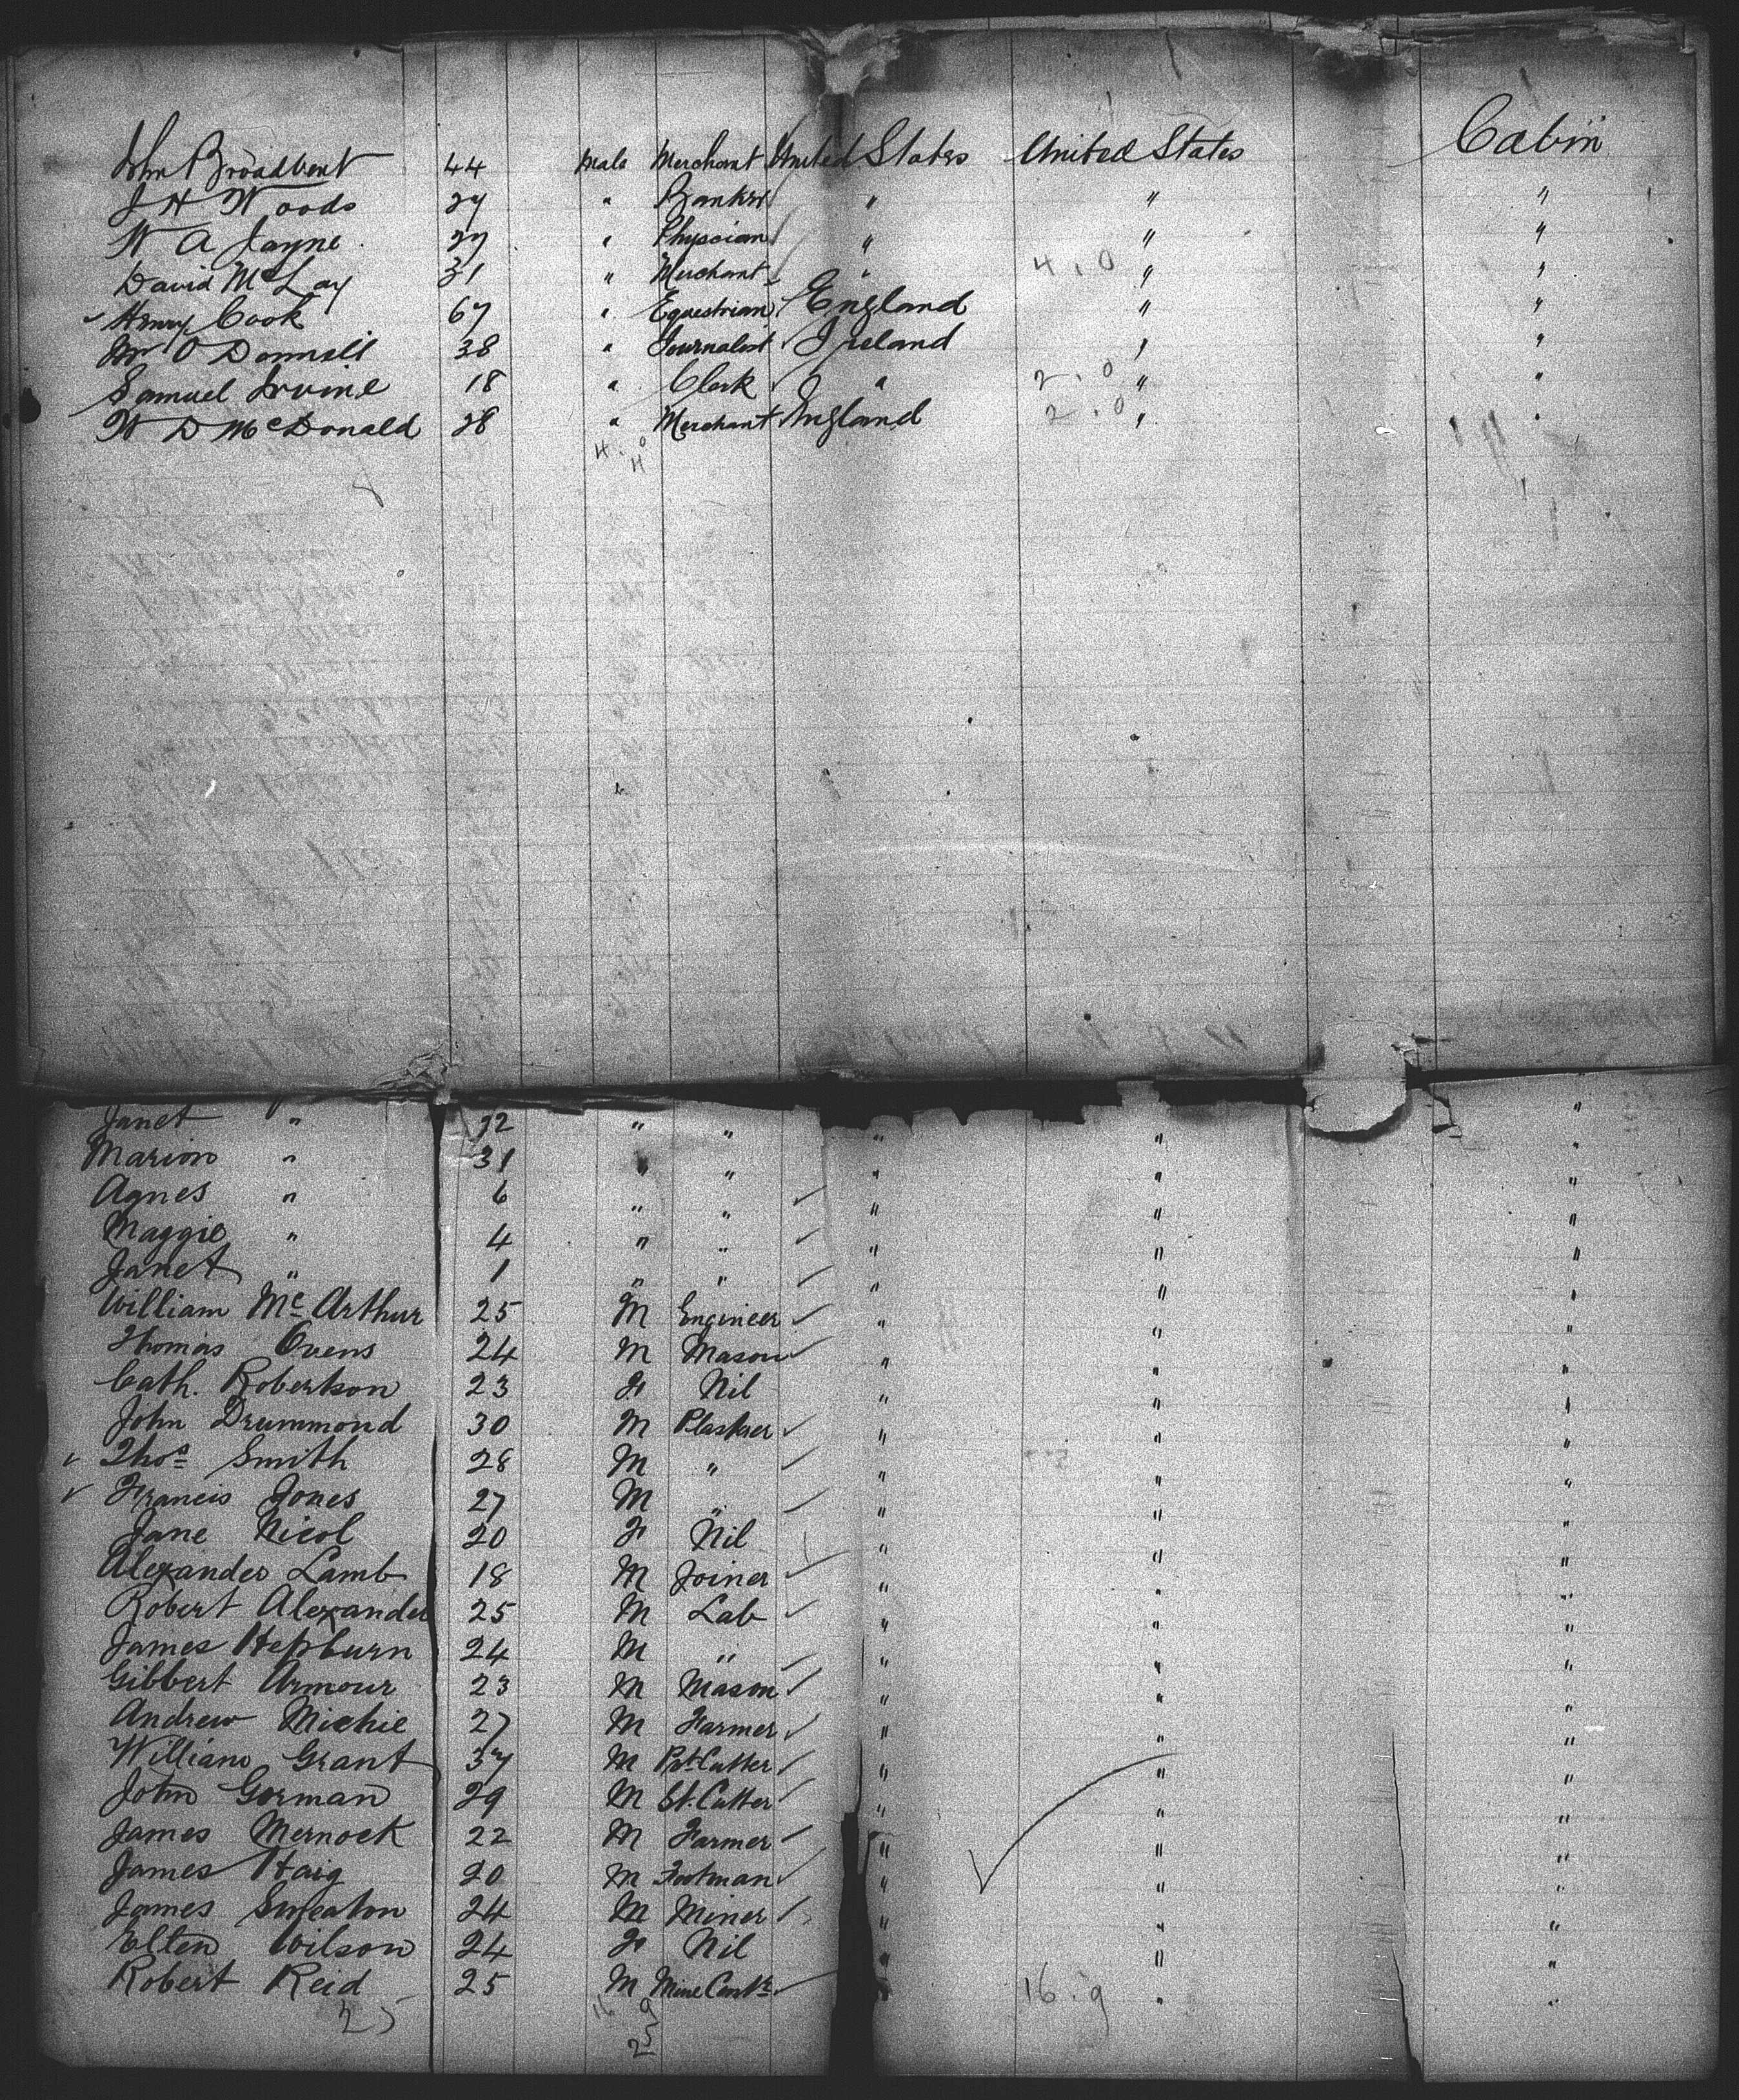 John Broadbent 44 Male Merchant United States United States Cabin
J H Woods 27 " Banker " " "
W A Jayne 27 " Physcian " " "
David McLay 31 " Merchant " 4.0 " "
Henry Cook 67 " Equestrian England " "
O Donnell 38 " Journalist Ireland " "
Samuel Irvine 18 " Clerk " 2.0 " "
W D McDonald 28 " Merchant England 2.0 " "
4.0
4
Janet " " " " " "
Marion " 31 " " " " "
Agnes " 6 " " " " "
Maggie " 4 " " " " "
Janet " 1 " " " " "
William Mc Arthur 25 M Engineer " " "
Thomas Ovens 24 M Mason " " "
Cath. Robertson 23 F Nil " " "
John Drummond 30 M Plastrer " " "
Thos Smith 28 M " " " "
Francis Jones 27 M " " " "
Jane Nicol 20 F Nil " " "
Alexander Lamb 18 M Joiner " " "
Robert Alexander 25 M Lab " " "
James Hepburn 24 M " " " "
Gibbert Armour 23 M Mason " " "
Andrew Michie 27 M Farmer " " "
William Grant 37 M Cutter " " "
John Gorman 29 M St. Cutter " " "
James Mernock 22 M Farmer " " "
James Haig 20 M Footman " " "
James Smeaton 24 M Miner " " "
Ellen Wilson 24 F Nil " " "
Robert Reid 25 M Mine " 16.9 " "
25 16 9
25